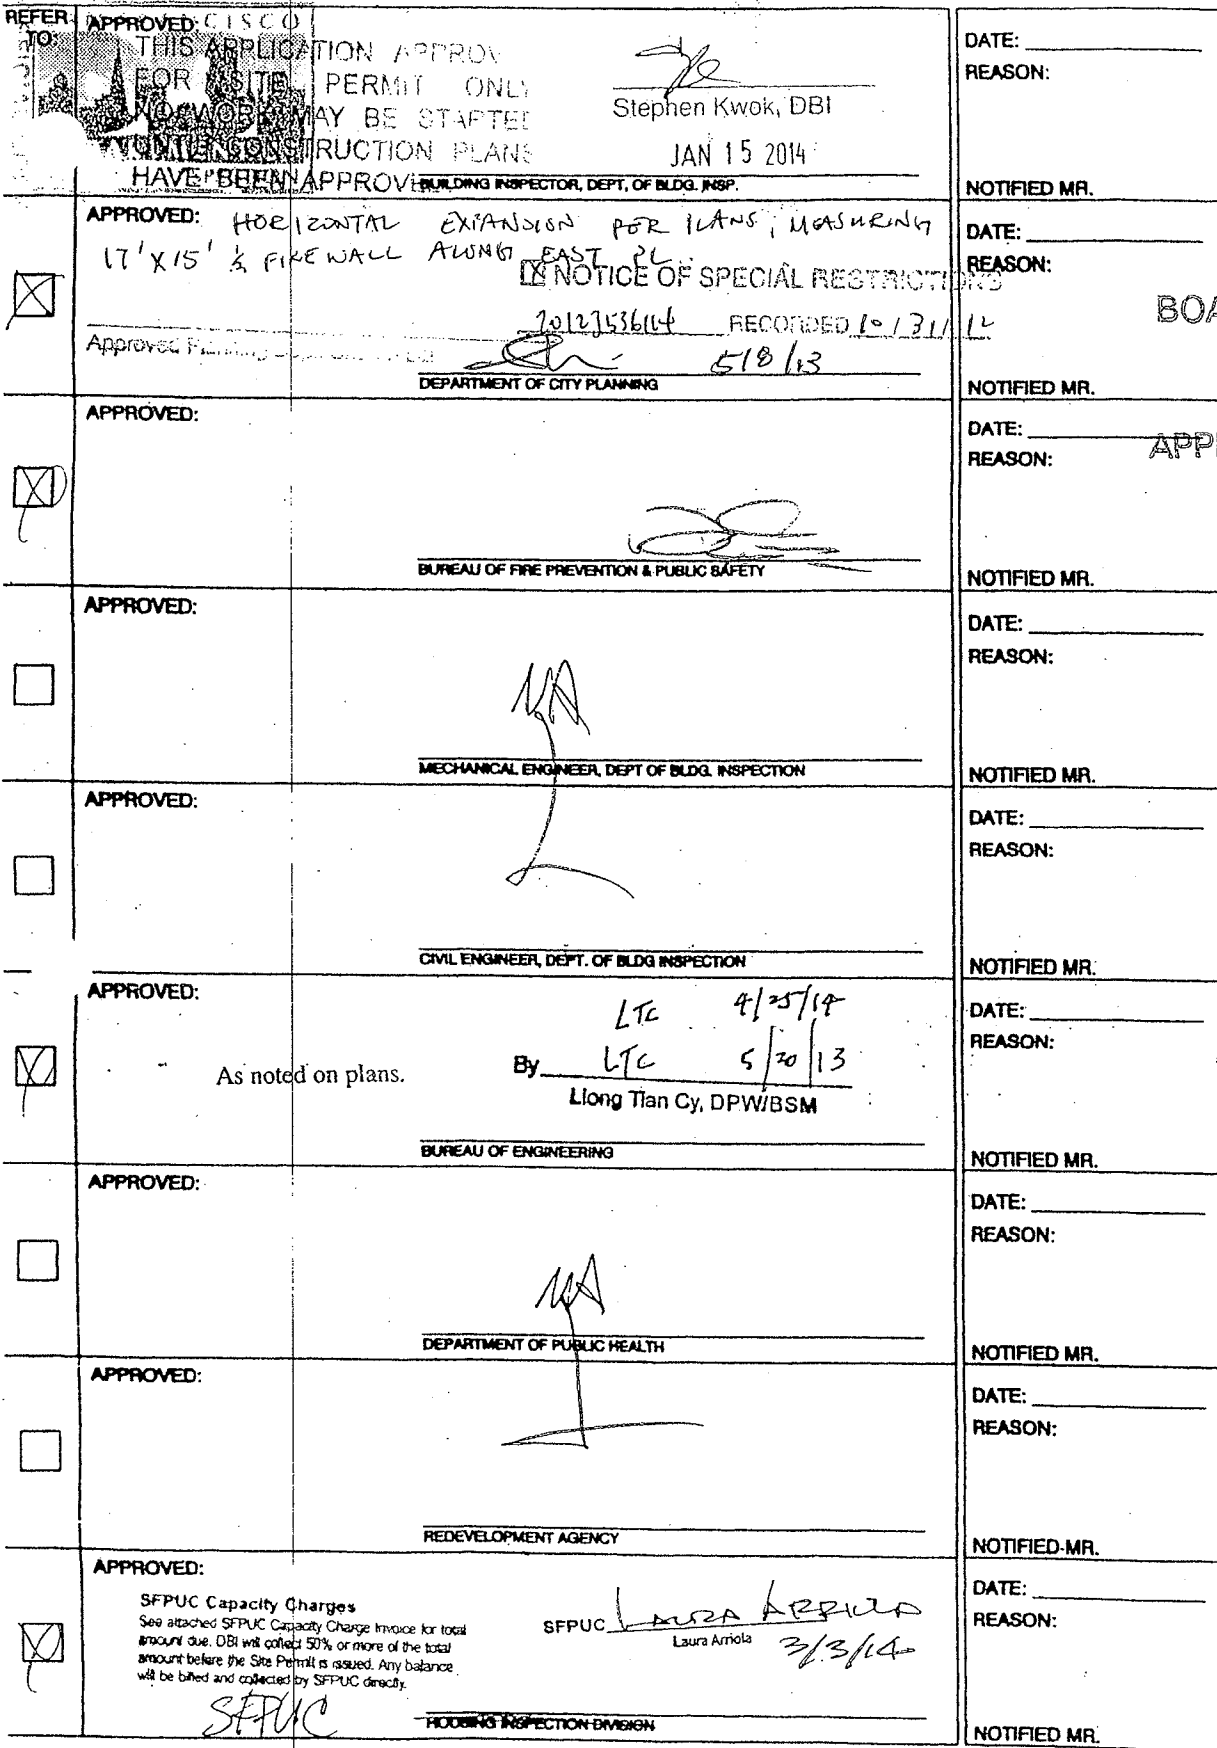 REFER TO:
APPROVED:
CISCO
THIS APPLICATION APPROV
FOR SITE PERMIT ONLY
NO WORK MAY BE STARTED
UNTIL CONSTRUCTION PLANS
HAVE BEEN APPROV
Stephen Kwok, DBI
JAN 15 2014
BUILDING INSPECTOR, DEPT. OF BLDG. INSP.
DATE:
REASON:
NOTIFIED MR.
APPROVED: HORIZONTAL EXPANSION PER PLANS, MEASURING
17' X 15' & FIREWALL ALONG EAST PL.
NOTICE OF SPECIAL RESTRICTIONS
RECORDED 10/31/12
Approved
5/8/13
DEPARTMENT OF CITY PLANNING
DATE:
REASON:
BOA
NOTIFIED MR.
APPROVED:
BUREAU OF FIRE PREVENTION & PUBLIC SAFETY
DATE:
REASON:
APP
NOTIFIED MR.
APPROVED:
N/A
MECHANICAL ENGINEER, DEPT OF BLDG. INSPECTION
DATE:
REASON:
NOTIFIED MR.
APPROVED:
CIVIL ENGINEER, DEPT. OF BLDG INSPECTION
DATE:
REASON:
NOTIFIED MR.
APPROVED:
LTC 4/25/14
As noted on plans.
By LTC 5/20/13
Liong Tian Cy, DPW/BSM
BUREAU OF ENGINEERING
DATE:
REASON:
NOTIFIED MR.
APPROVED:
N/A
DEPARTMENT OF PUBLIC HEALTH
DATE:
REASON:
NOTIFIED MR.
APPROVED:
REDEVELOPMENT AGENCY
DATE:
REASON:
NOTIFIED MR.
APPROVED:
SFPUC Capacity Charges
See attached SFPUC Capacity Charge Invoice for total
amount due. DBI will collect 50% or more of the total
amount before the Site Permit is issued. Any balance
will be billed and collected by SFPUC directly.
SFPUC
SFPUC LAURA ARRIOLA
Laura Arriola 3/3/14
HOUSING INSPECTION DIVISION
DATE:
REASON:
NOTIFIED MR.